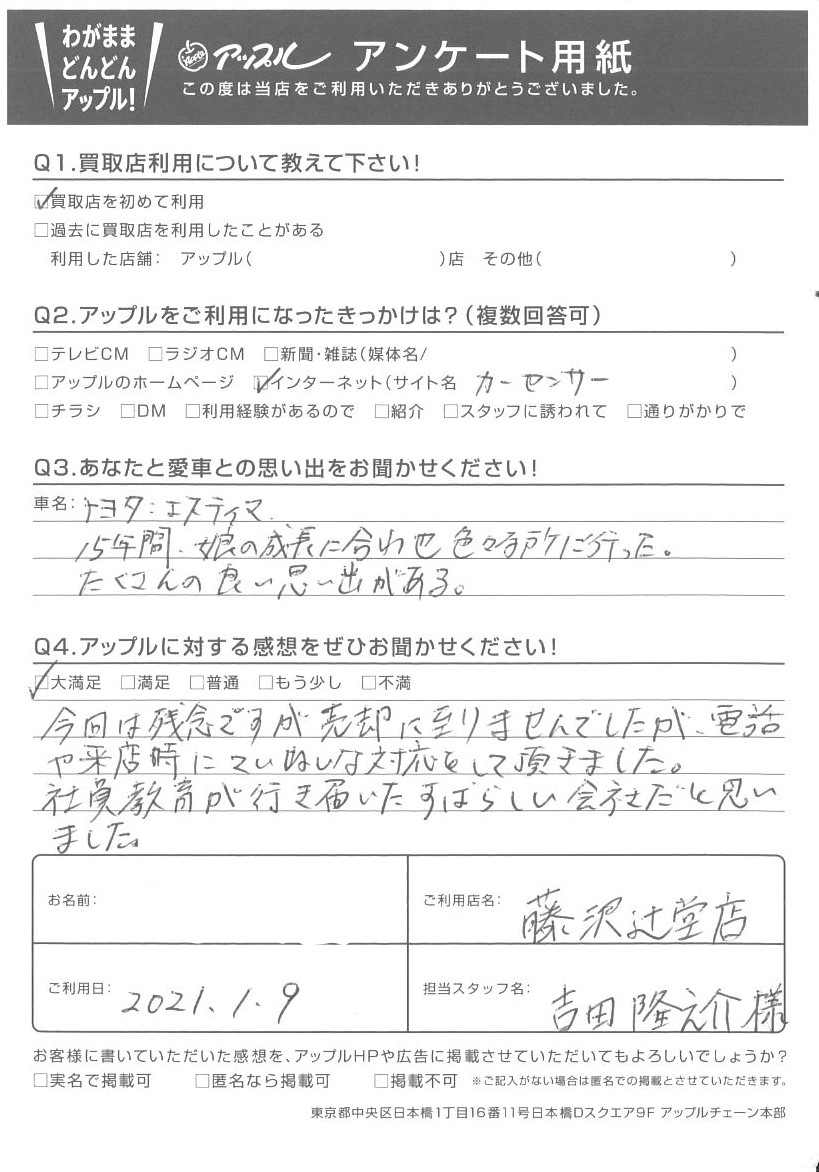 わがまま
どんどん
アップル!
アップル アンケート用紙
この度は当店をご利用いただきありがとうございました。
Q1.買取店利用について教えて下さい!
☑買取店を初めて利用
□過去に買取店を利用したことがある
利用した店舗: アップル( )店 その他( )
Q2.アップルをご利用になったきっかけは?(複数回答可)
□テレビCM □ラジオCM □新聞・雑誌(媒体名/ )
□アップルのホームページ ☑インターネット(サイト名 カーセンサー )
□チラシ □DM □利用経験があるので □紹介 □スタッフに誘われて □通りがかりで
Q3.あなたと愛車との思い出をお聞かせください!
車名:トヨタ:エスティマ
15年間、娘の成長に合わせ色々な所に行った。
たくさんの良い思い出がある。
Q4.アップルに対する感想をぜひお聞かせください!
☑大満足 □満足 □普通 □もう少し □不満
今回は残念ですが売却に至りませんでしたが、電話
や来店時にていねいな対応をして頂きました。
社員教育が行き届いたすばらしい会社だと思い
ました。
お名前:
ご利用店名: 藤沢辻堂店
ご利用日: 2021.1.9
担当スタッフ名: 吉田隆之介様
お客様に書いていただいた感想を、アップルHPや広告に掲載させていただいてもよろしいでしょうか?
□実名で掲載可 □匿名なら掲載可 □掲載不可 ※ご記入がない場合は匿名での掲載とさせていただきます。
東京都中央区日本橋1丁目16番11号日本橋Dスクエア9F アップルチェーン本部